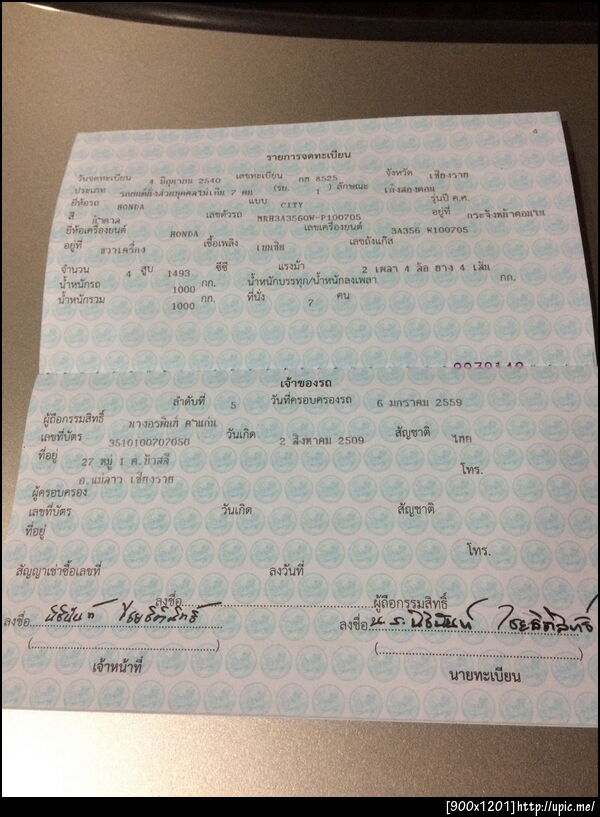 4
รายการจดทะเบียน
วันจดทะเบียน 4 มิถุนายน 2540 เลขทะเบียน กท 8525 จังหวัด เชียงราย
ประเภท รถยนต์นั่งส่วนบุคคลไม่เกิน 7 คน (รย. 1 ) ลักษณะ เก๋งสองตอน
ยี่ห้อรถ HONDA แบบ CITY รุ่นปี ค.ศ.
สี น้ำตาล เลขตัวรถ MRH3A3560W-P100705 อยู่ที่ กระจังหน้าคอมาน
ยี่ห้อเครื่องยนต์ HONDA เลขเครื่องยนต์ 3A356 W100705
อยู่ที่ ขวาเครื่อง เชื้อเพลิง เบนซิน เลขถังแก๊ส
จำนวน 4 สูบ 1493 ซีซี แรงม้า 2 เพลา 4 ล้อ ยาง 4 เส้น
น้ำหนักรถ 1000 กก. น้ำหนักบรรทุก/น้ำหนักลงเพลา กก.
น้ำหนักรวม 1000 กก. ที่นั่ง 7 คน
เจ้าของรถ
ลำดับที่ 5 วันที่ครอบครองรถ 6 มกราคม 2559
ผู้ถือกรรมสิทธิ์
เลขที่บัตร 3510100707050 วันเกิด 2 สิงหาคม 2509 สัญชาติ ไทย
ที่อยู่ 27 หมู่ 1 ต.บัวสลี โทร.
อ.แม่ลาว เชียงราย
ผู้ครอบครอง
เลขที่บัตร วันเกิด สัญชาติ
ที่อยู่
โทร.
สัญญาเช่าซื้อเลขที่ ลงวันที่
ลงชื่อ ผู้ถือกรรมสิทธิ์
ลงชื่อ ลงชื่อ
(                ) (                )
เจ้าหน้าที่ นายทะเบียน
[900x1201]http://upic.me/